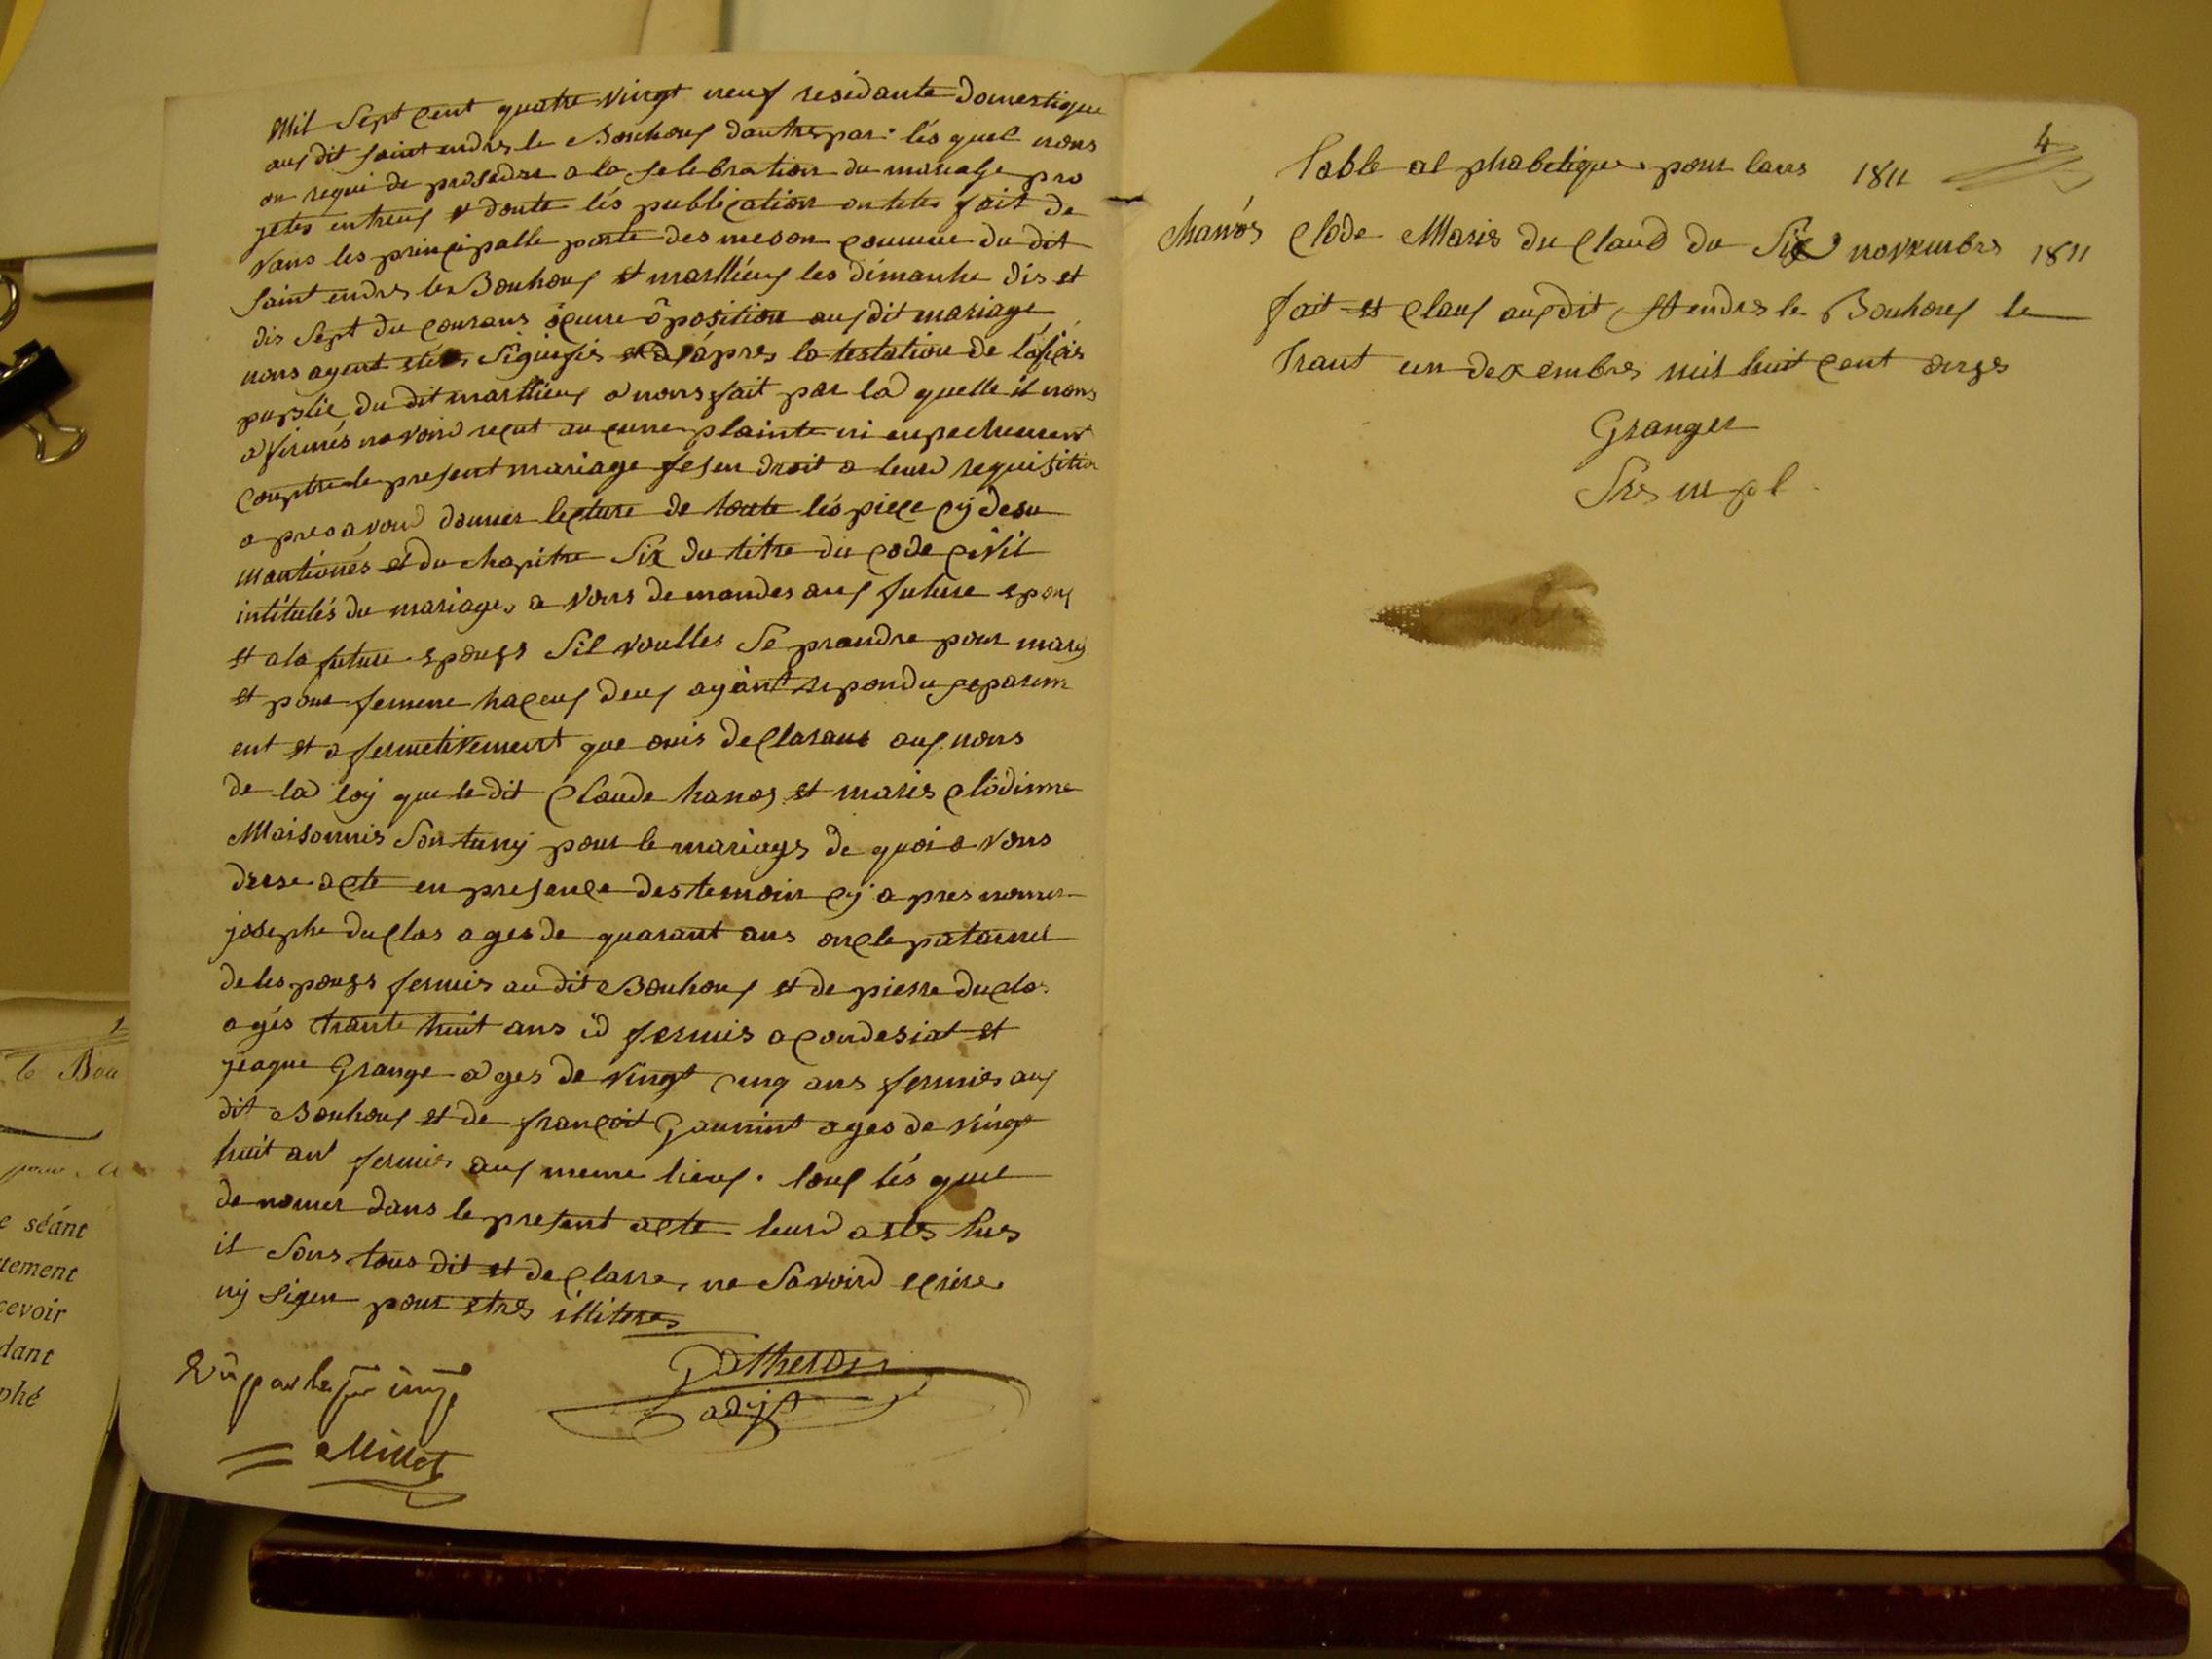 Mil Sept Cent quatre vingt neuf residante domestique
aux dit saint endres le Bouhoux dautre par. lés quel nous
on requi de prosedre a la selebration du mariage pro
jetes entreux et donte lés publication on étés fait de
vans les principalle porte des meson commune du dit
saint endres le Bouhoux et marllieux les dimanhe dis et
dis Sept du courans ocune oposition aux dit mariage
nous ayent etés Signifies et dapres la testation de lofisies
puplic du dit marllieux a nous fait par la quelle il nous
afirmés navoird reçut au cune plainte ni enpechement
comptre le present mariage fesen droit a leurd requisition
apres avoird donner lecture de toute lés piece cy desu
mantionés et du chapitre Six du titre du code civil
intitulés du mariage, a vons demandes aux future epoux
et a la future epouse Sil voulles Se prandre pour mary
et pour femme haceux deux ayant repondu separem
ent et afermetivement que ouis declarans aux nons
de la loy que le dit Claude hanos et maries clodinne
Maisonnies Son tuny pour le mariage de quoi a vons
drese acte en presence des temoin cy apres nomer
josephe duclos ages de quarant ans oncle paternel
de lespouse fermies au dit Bouhoux et de pierre duclos
agés trante huit ans id fermies a condesiat et
jeaque Grange ages de vingt cinq ans fermies aux
dit Bouhoux et de françoit Gaunint agés de vingt
huit an fermies aux meme lieux. toux lés quel
denomer dans le present acte leurd astes lus
il Sons tous dit et declarre, ne Savoird ecrire
ny Signer pour etres illiteres
Vû par le juge
Millet
adjt
4
Table alphabetique pour lans 1811
Chanos Clode Maries du Claud du Six novembres 1811
fait et claux aux dit St endres le Bouhoux le
Trant un dexembres mil huit cent onze
Granger